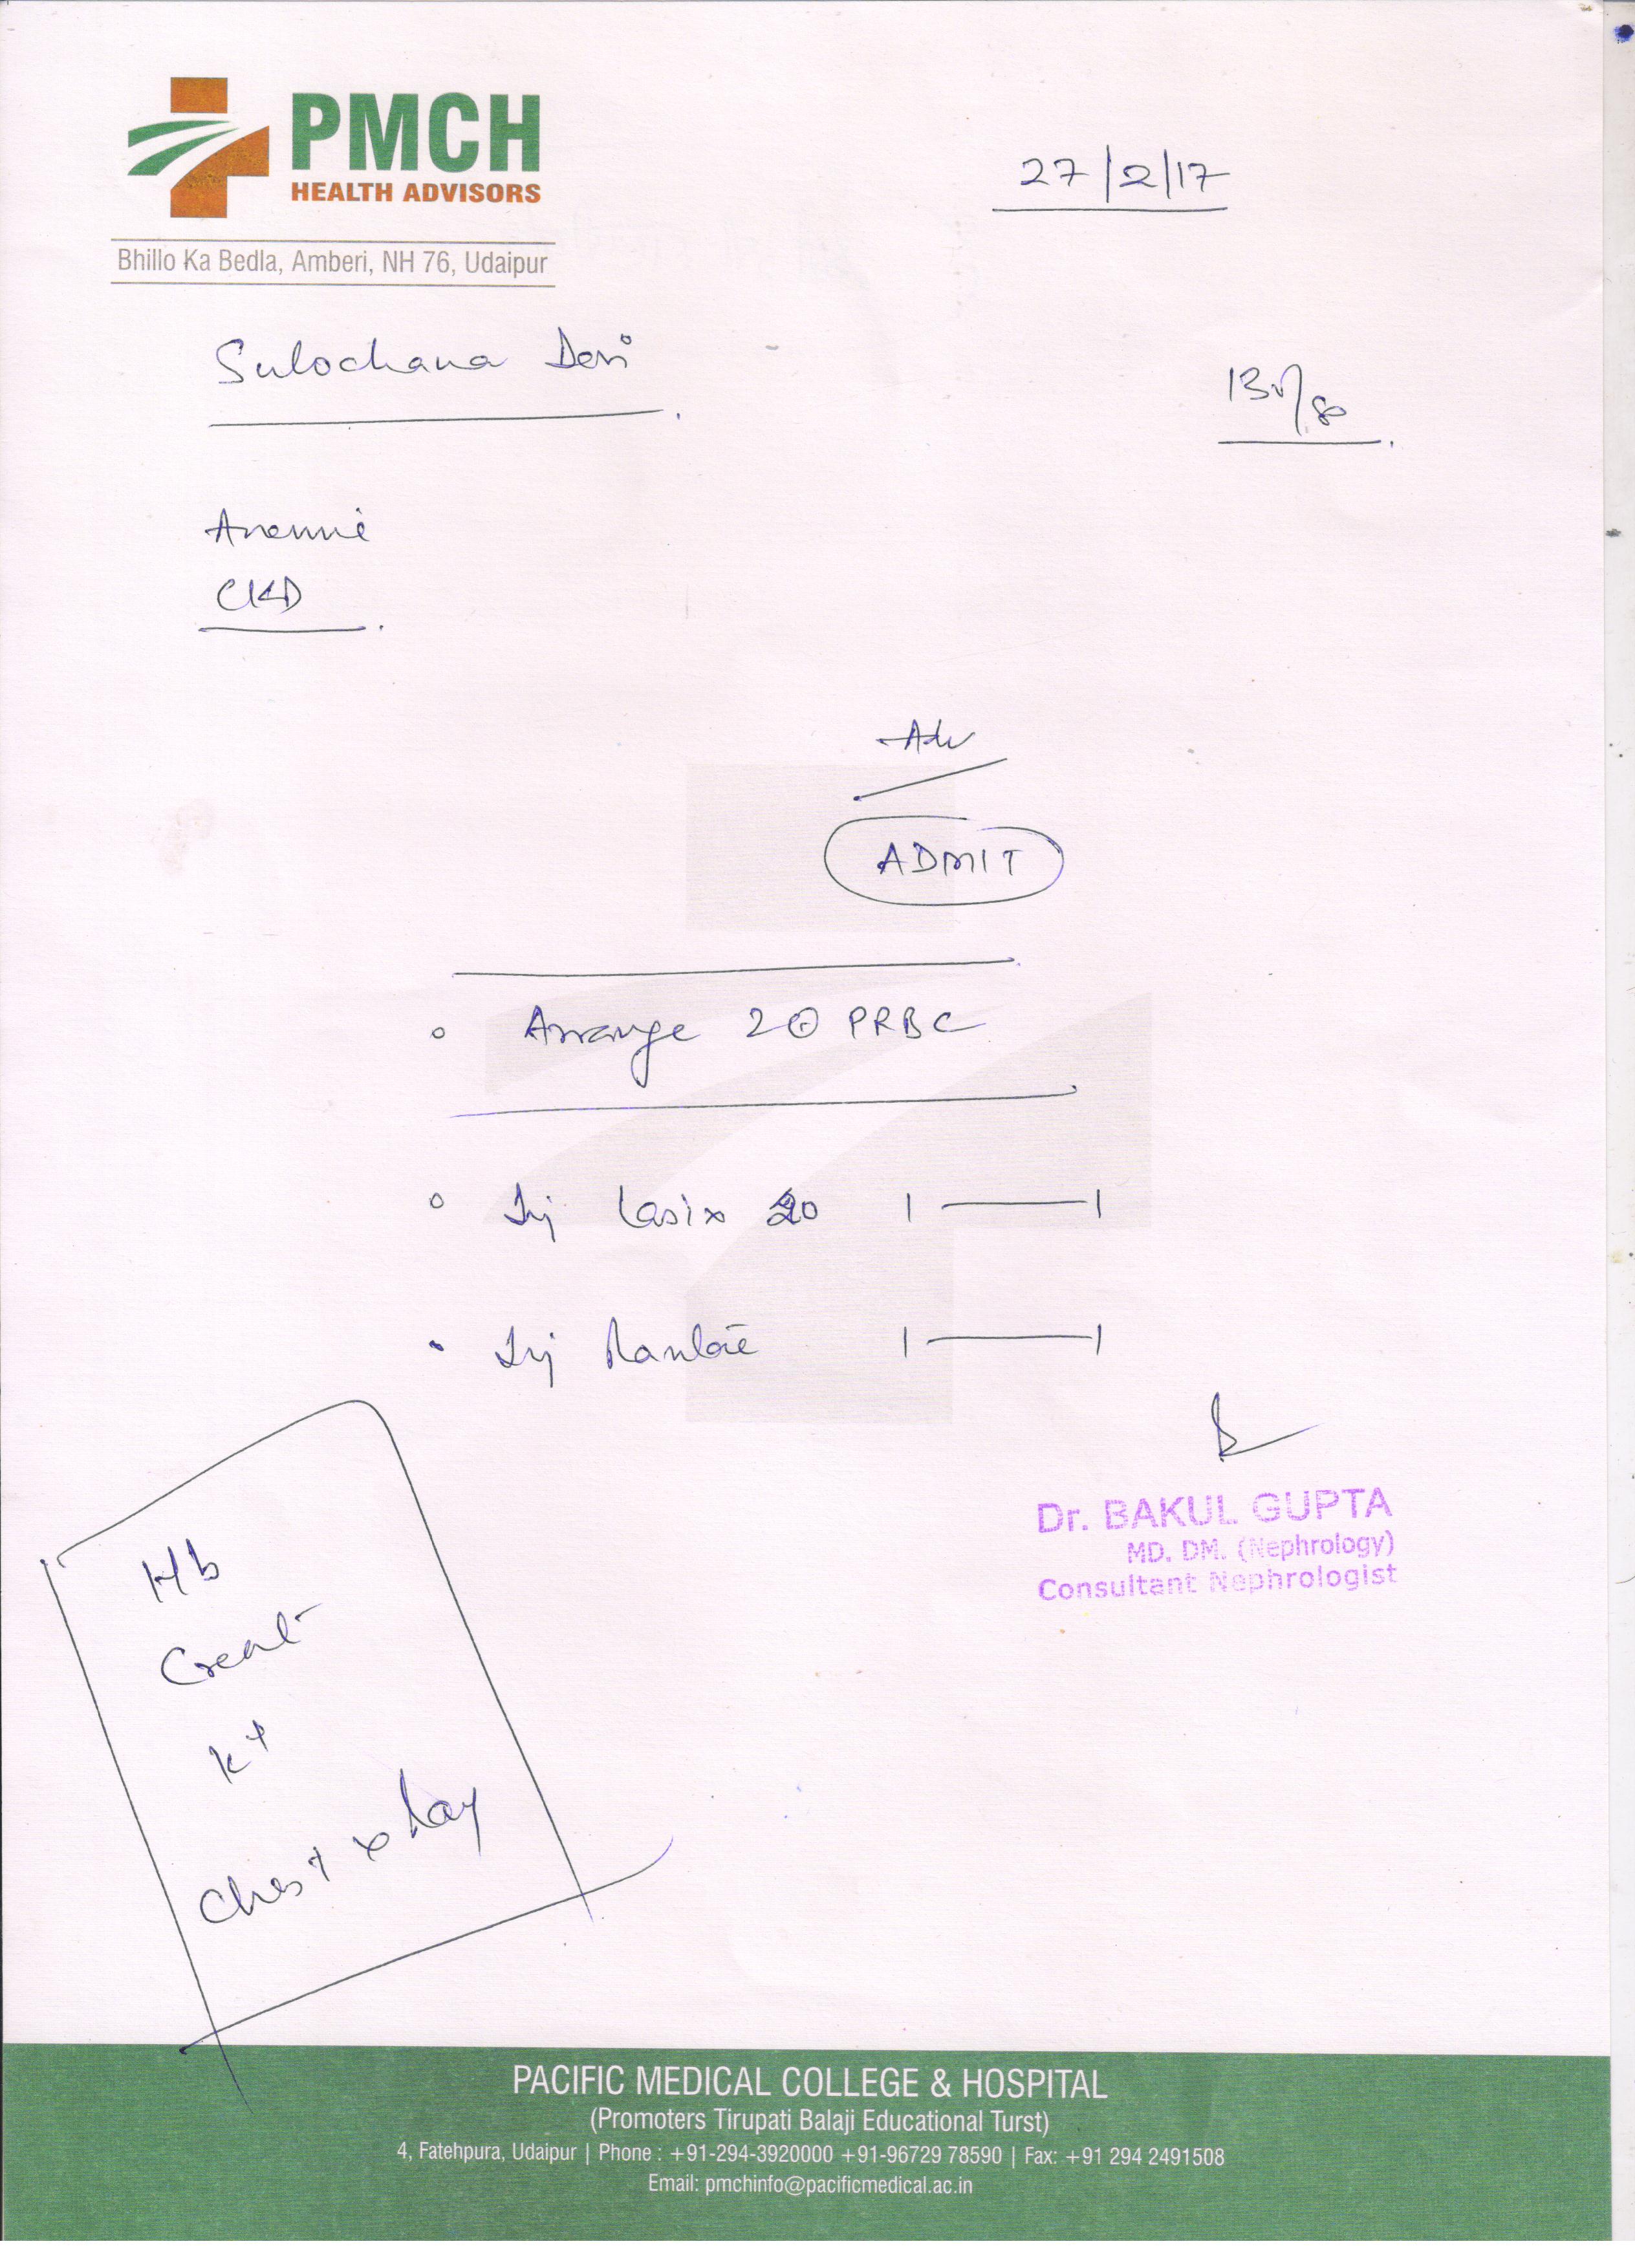 PMCH
HEALTH ADVISORS
Bhillo Ka Bedla, Amberi, NH 76, Udaipur
27/2/17
Sulochana Devi
130/80
Anemia
CKD
Adv
ADMIT
Arrange 2 PRBC
Inj Lasix 20 1 — 1
Inj 1 — 1
Dr. BAKUL GUPTA
MD. DM. (Nephrology)
Consultant Nephrologist
Hb
Creat
K+
Chest x Ray
PACIFIC MEDICAL COLLEGE & HOSPITAL
(Promoters Tirupati Balaji Educational Turst)
4, Fatehpura, Udaipur | Phone : +91-294-3920000 +91-96729 78590 | Fax: +91 294 2491508
Email: pmchinfo@pacificmedical.ac.in